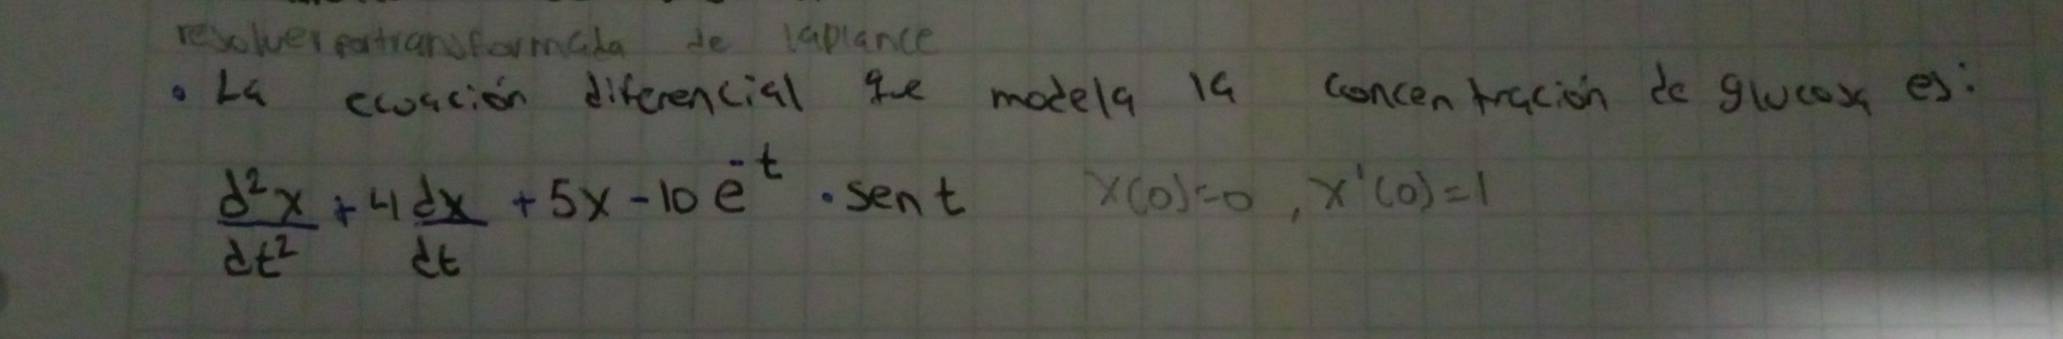 resolver por transformada de laplance
• La ecuación diferencial que modela la concentración de glucosa es:
d²x/dt² + 4 dx/dt + 5x - 10 e^-t · sen t x(0)=0, x'(0)=1